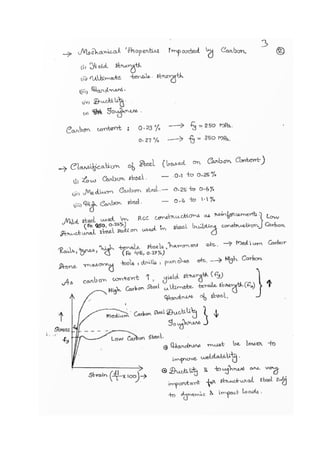 3
→ Mechanical Properties Imparted by Carbon,
(i) Yield strength
(ii) Ultimate tensile strength
(iii) Hardness.
(iv) Ductility
(v) Toughness.
Carbon content : 0.23 % → fy = 250 MPa.
0.27 % → fy = 350 MPa.
→ Classification of Steel (based on Carbon Content)
(i) Low Carbon steel. — 0.1 to 0.25 %
(ii) Medium Carbon steel — 0.25 to 0.6%
(iii) High Carbon steel. — 0.6 to 1.1%
Mild steel used in RCC constructions as reinforcements } Low
Structural steel section used in steel building construction } Carbon
Rails, tyres, high tensile steels, hammers etc. → Medium Carbon
Stone masonry tools, drills, punches etc. → High Carbon
As carbon content ↑, yield strength (fy)
ultimate tensile strength (fu) } ↑
Hardness of steel.
High Carbon Steel
Medium Carbon Steel
Ductility
Toughness } ↓
Low Carbon Steel.
Stress
fy
Strain (Δl/l × 100) →
Hardness must be lower to
improve weldability.
Ductility & toughness are very
important for structural steel subj
to dynamic & impact loads.